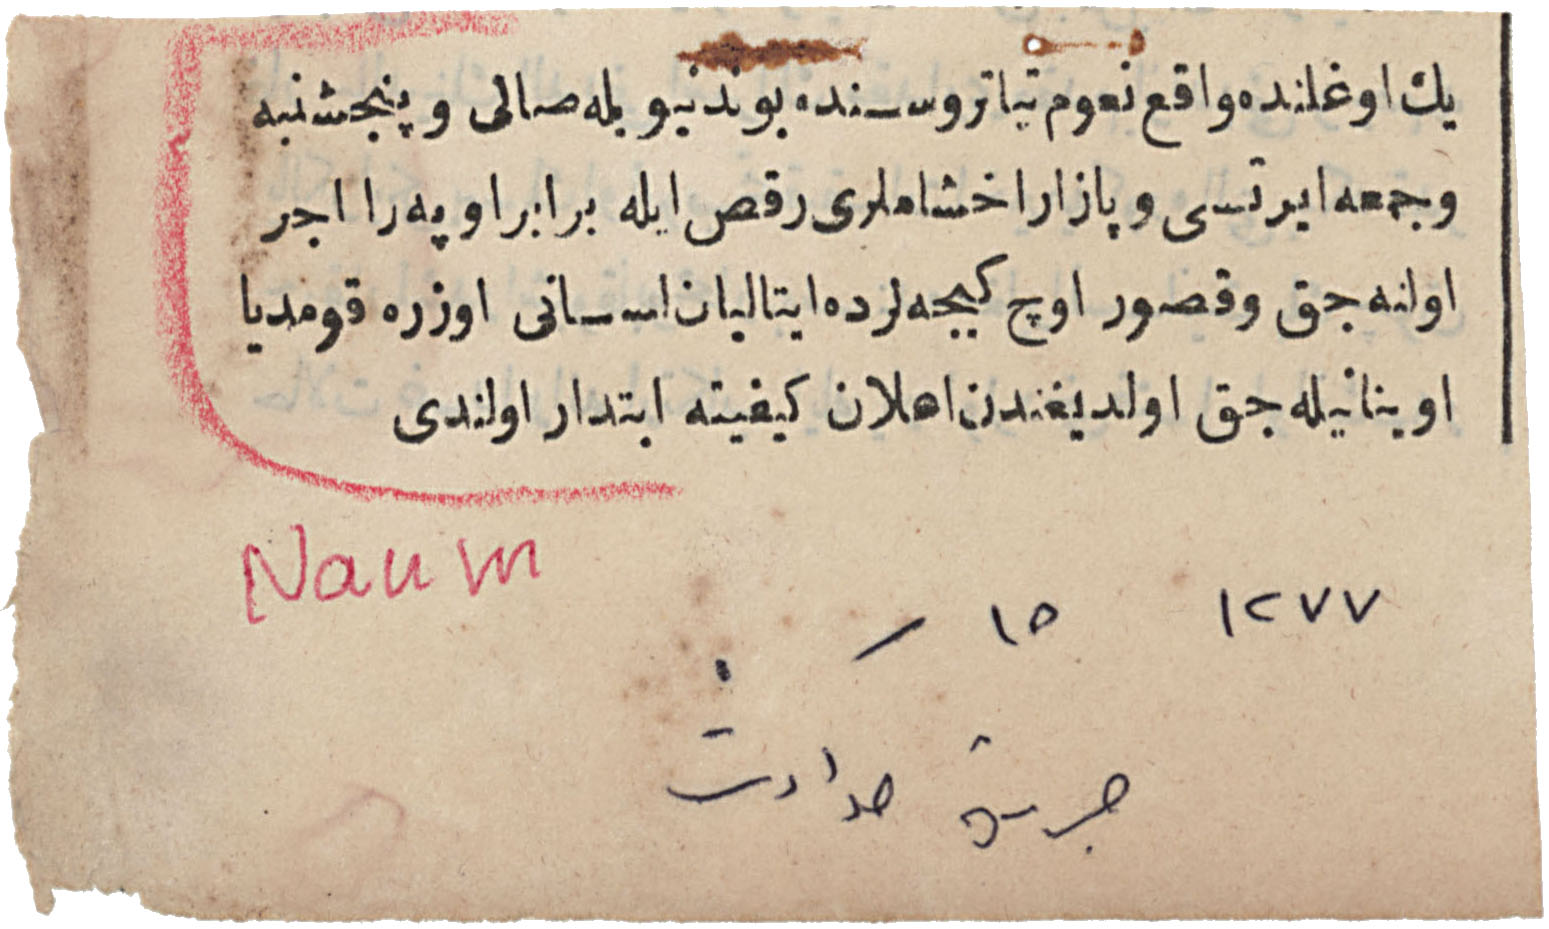 يك اوغلنده واقع نعوم تياتروسنده بوندنبويله صالى و پنجشنبه
و جمعه ايرتسى و پازار اخشاملرى رقص ايله برابر اوپه را اجر
اولنه جق و قصور اوچ كيجه لرده ايتاليان لسانى اوزره قومديا
اوينانيله جق اولديغندن اعلان كيفيته ابتدار اولندى
Naum
١٢٧٧ ١٥
حوادث